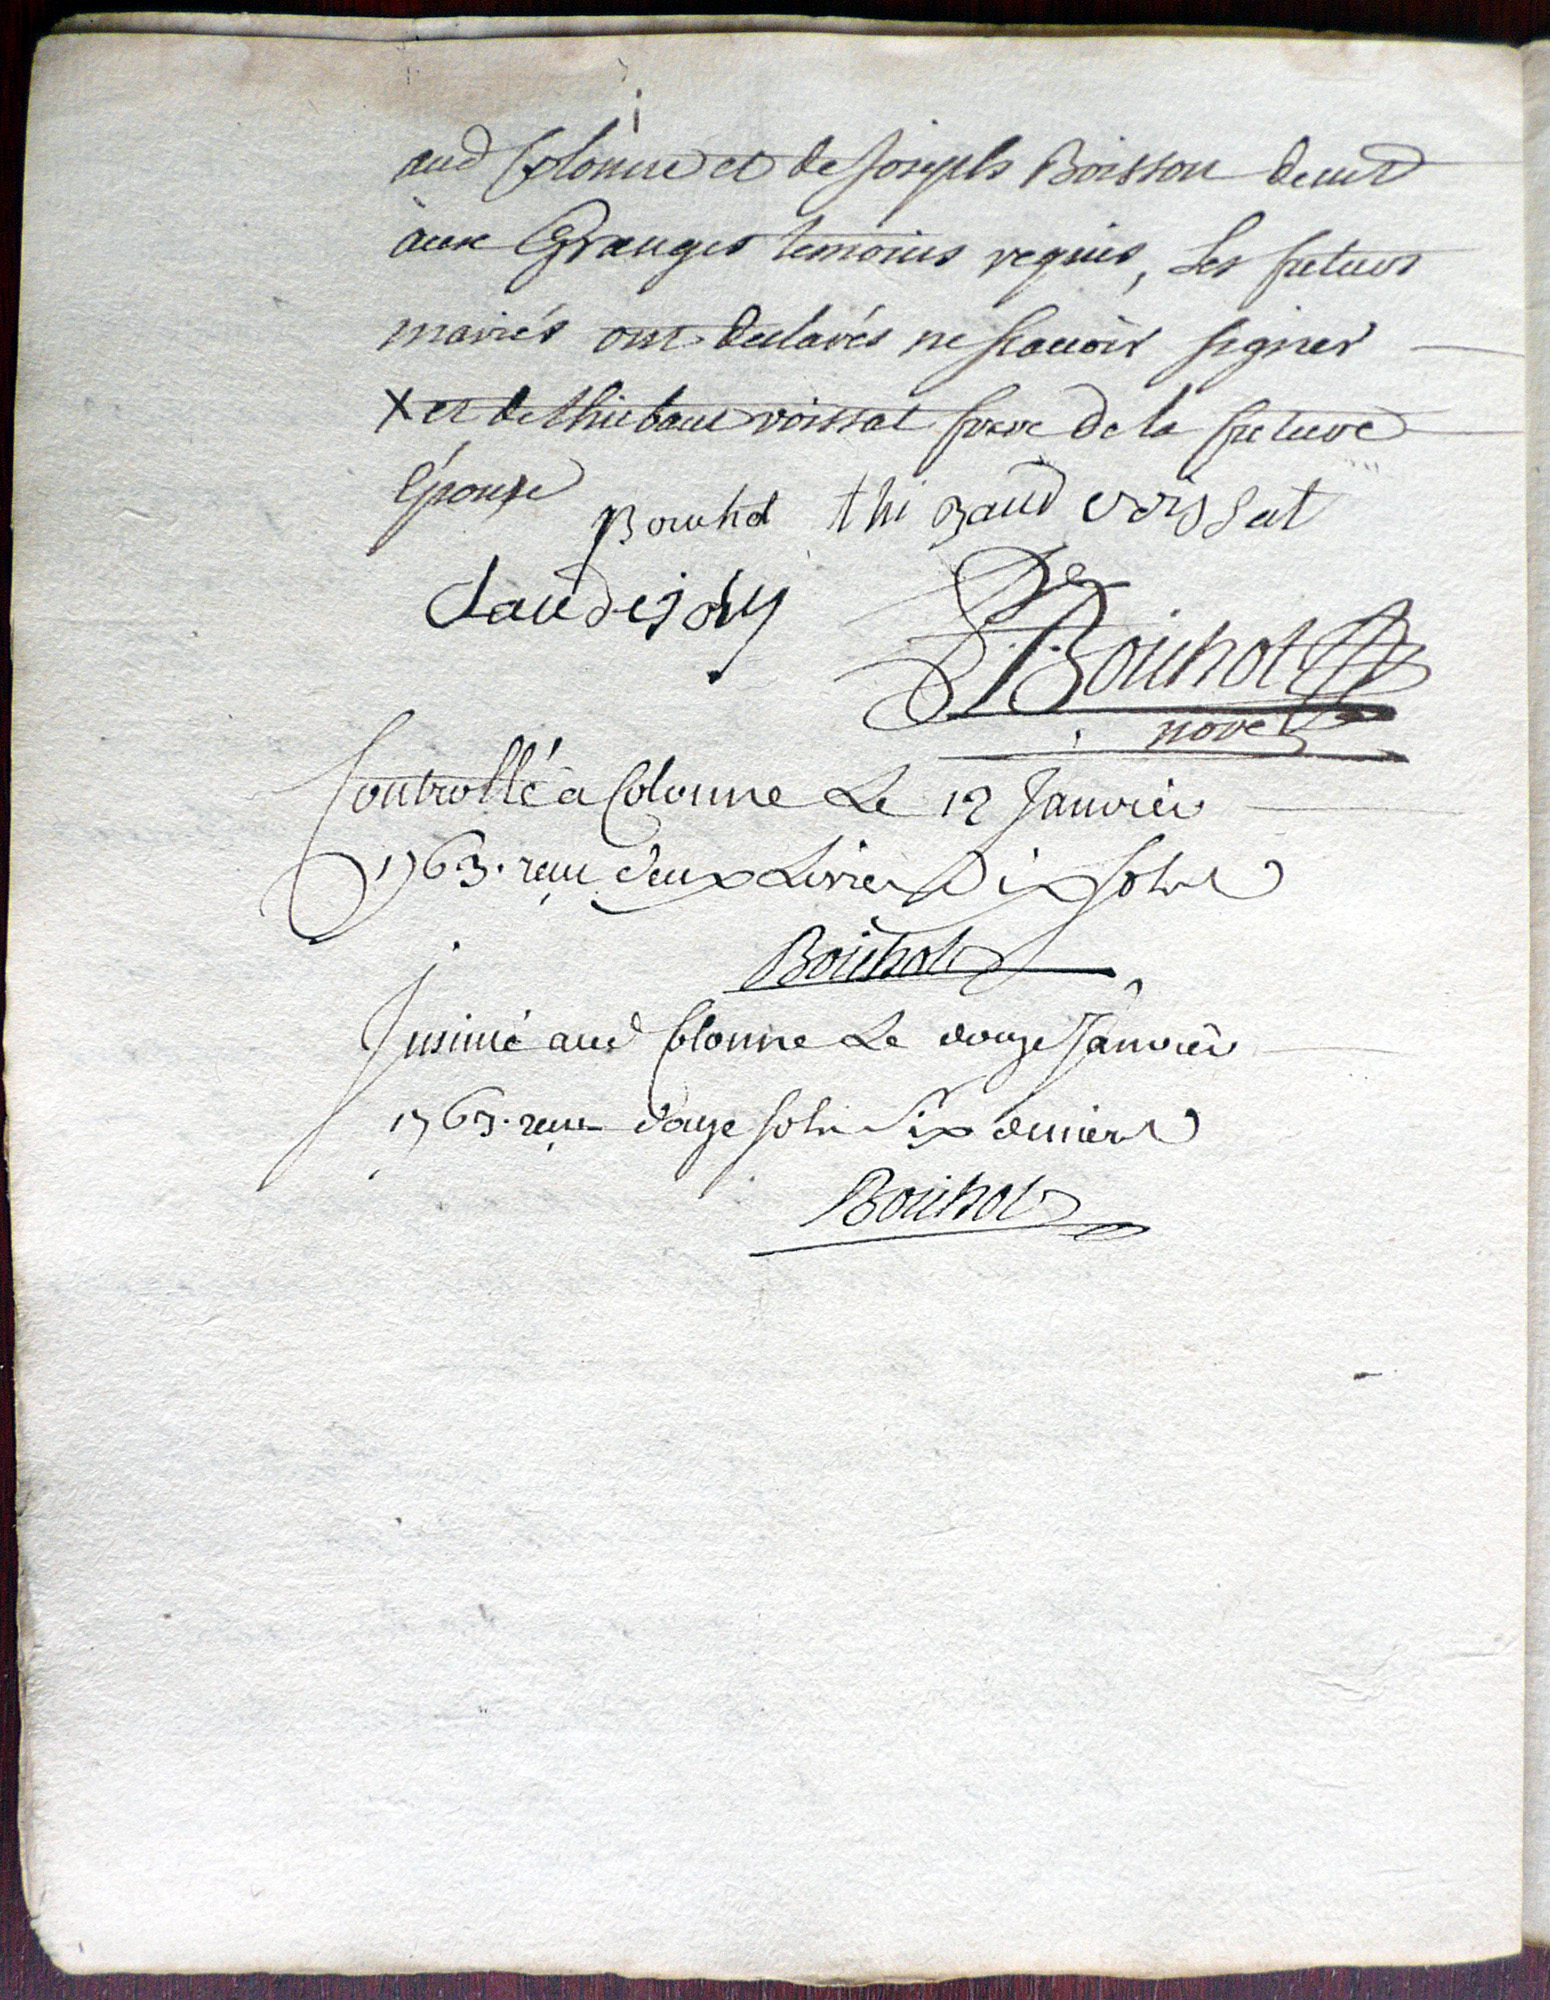 aud Colonne et de Joseph Boisson demt
aux Granges temoins requis, Les futurs
mariés ont declarés ne scauoir signer
X et de thiebaut voissat frere de la future
Epouse
Bouchot thi Baud voissat
claude joly
Bouchot
nore
Controllé a Colonne Le 12 Janvier
1763. recu deux Livres Dix sols
Bouchot
Insinué aud Colonne Le douze Janvier
1763. recu douze sols Six deniers
Bouchot